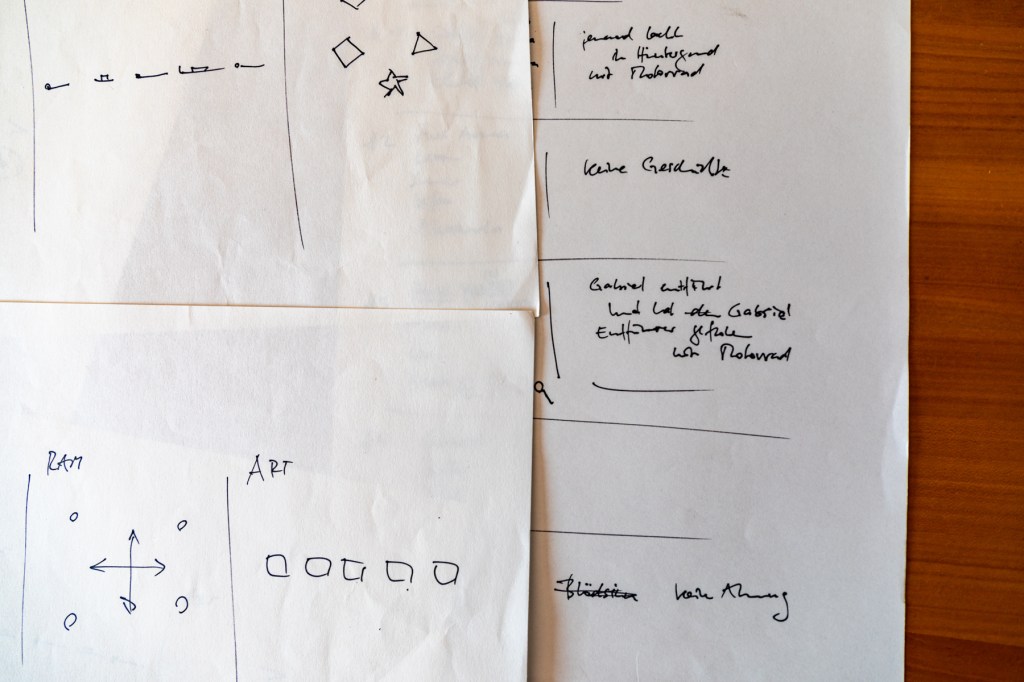 RAM
ART
jemand
im Hintergrund
mit Motorrad
keine Geschichte
Gabriel entführt
und hat den Gabriel
Entführer
mit Motorrad
Blödsinn keine Ahnung